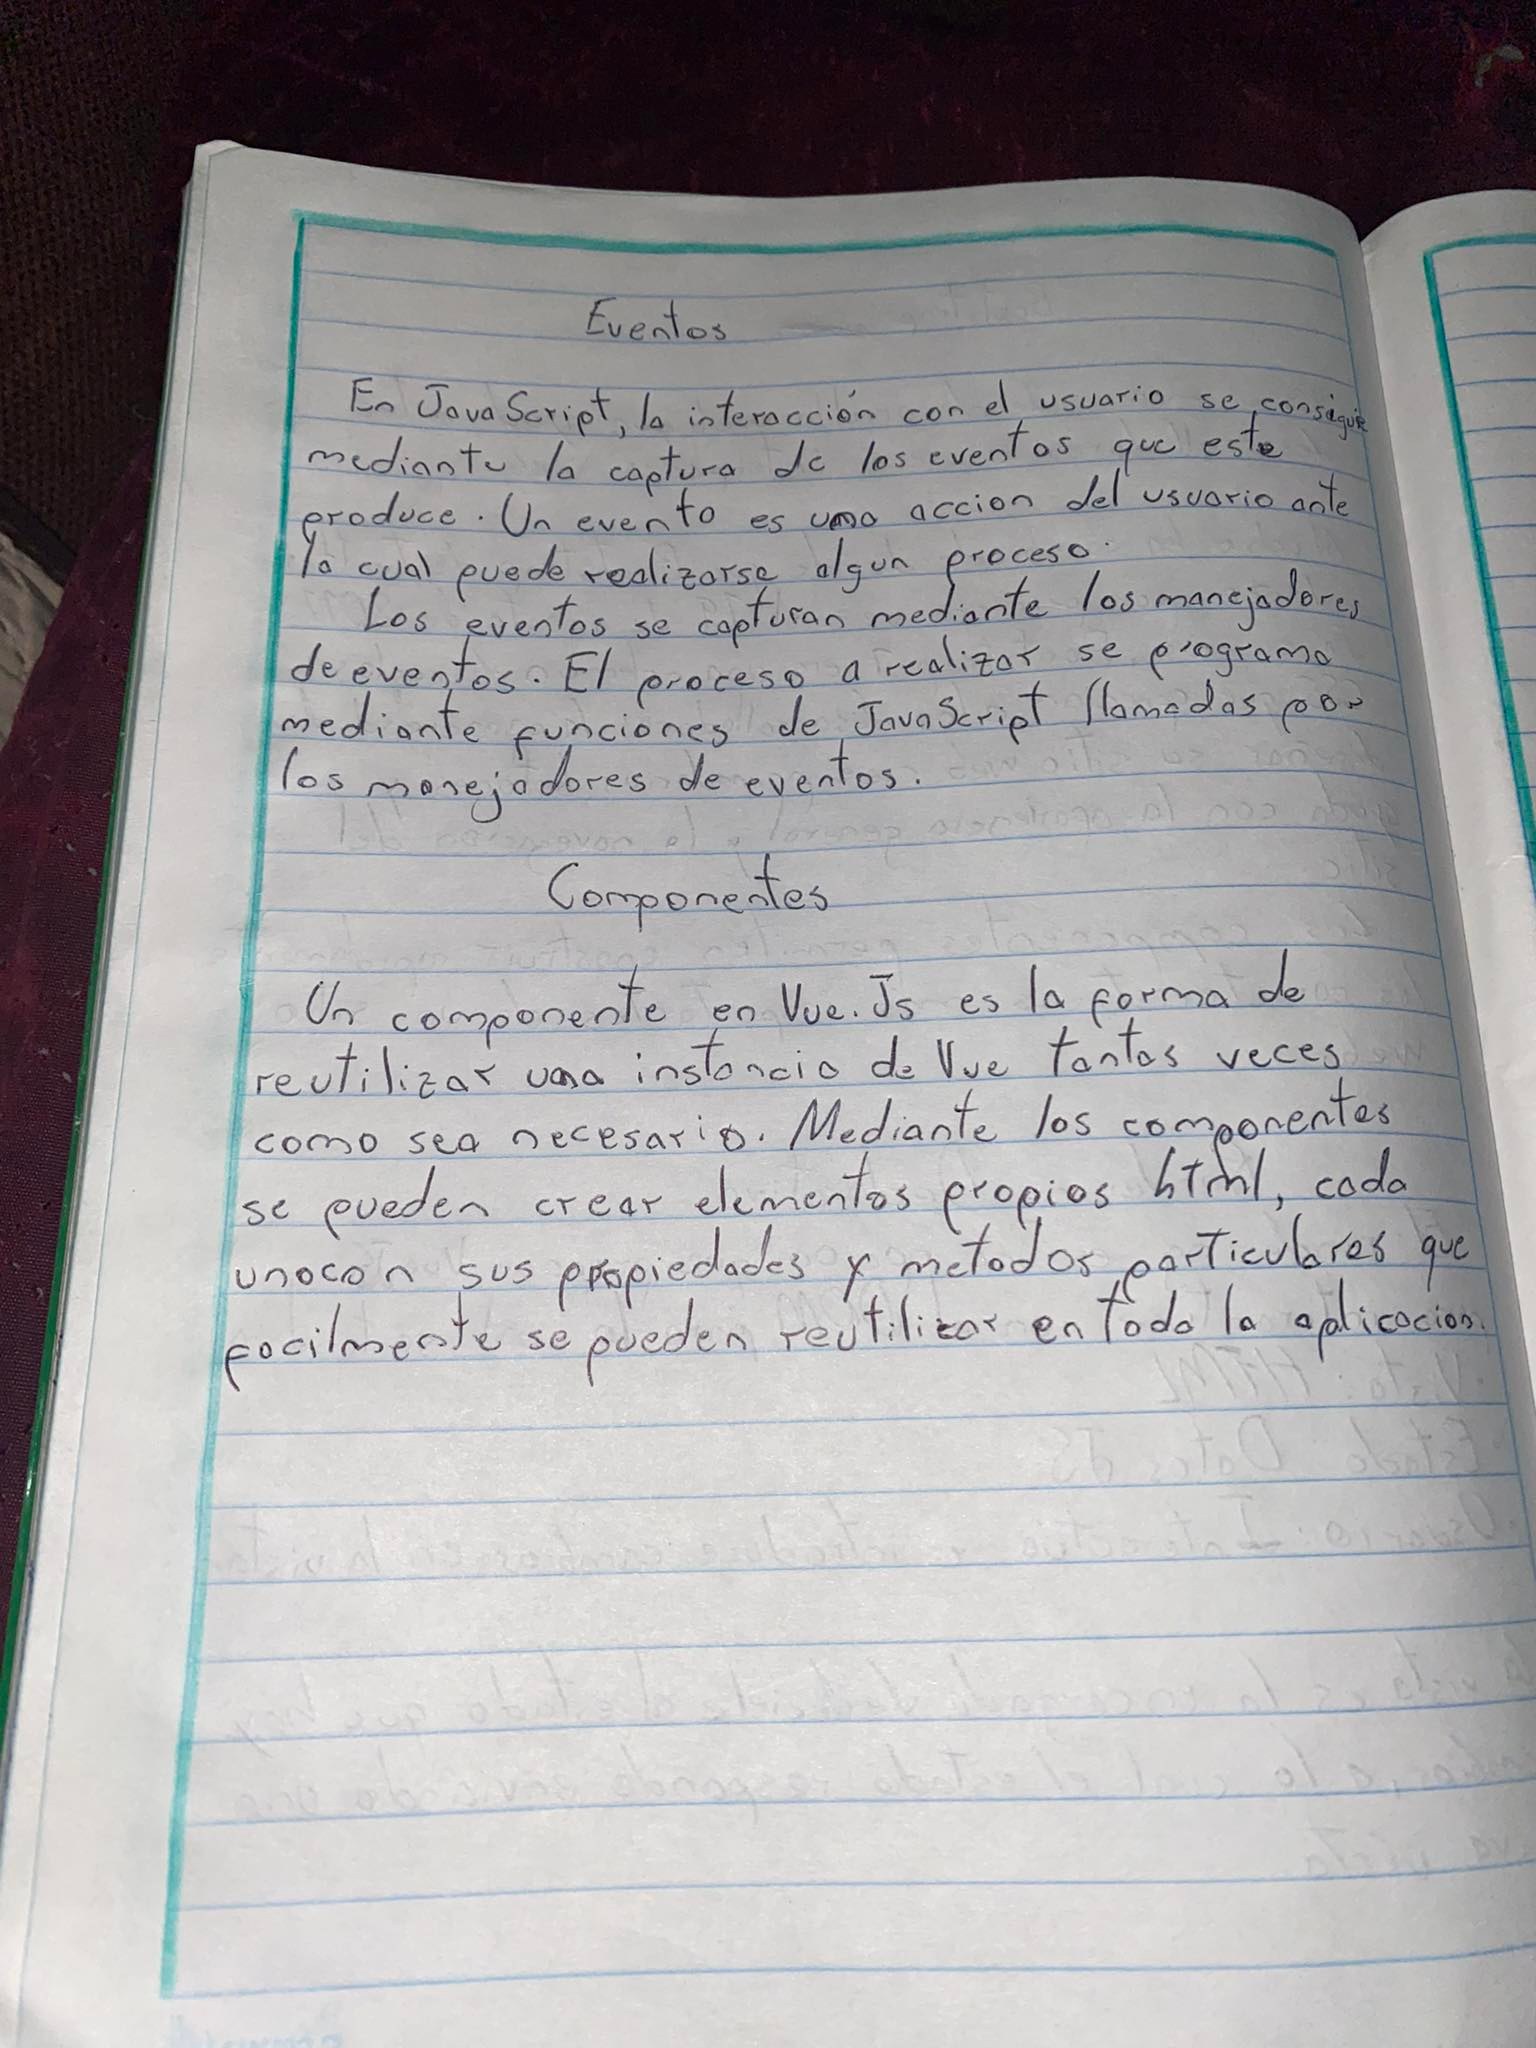 Eventos
En JavaScript, la interacción con el usuario se consigue
mediante la captura de los eventos que este
produce. Un evento es una accion del usuario ante
la cual puede realizarse algun proceso.
Los eventos se capturan mediante los manejadores
de eventos. El proceso a realizar se programa
mediante funciones de JavaScript llamadas por
los manejadores de eventos.
Componentes
Un componente en Vue.Js es la forma de
reutilizar una instancia de Vue tantas veces
como sea necesario. Mediante los componentes
se pueden crear elementos propios html, cada
uno con sus propiedades y metodos particulares que
facilmente se pueden reutilizar en toda la aplicacion.